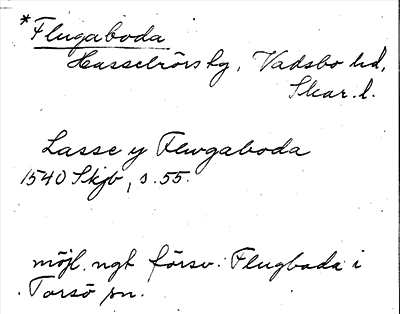 *Flugaboda
Hasselrörs kg, Vadsbo hd,
Skar. l.
Lasse y Flwgaboda
1540 Skjb, s. 55.
möjl. ngt försv. Flugboda i
Torsö sn.